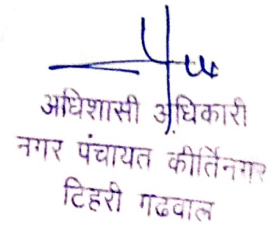 अधिशासी अधिकारी
नगर पंचायत कीर्तिनगर
टिहरी गढवाल